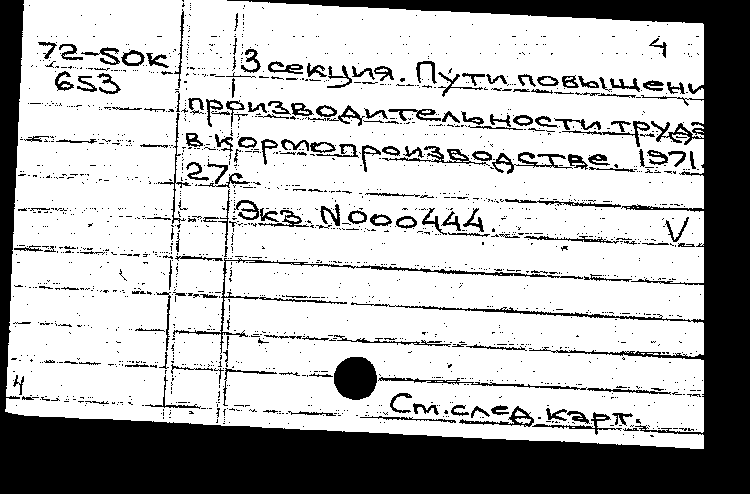 4
72-SOK
653
3 секция. Пути повышени
производительности труда
в кормопроизводстве. 1971.
27с.
Экз. N000444.
V
4
См.след.карт.